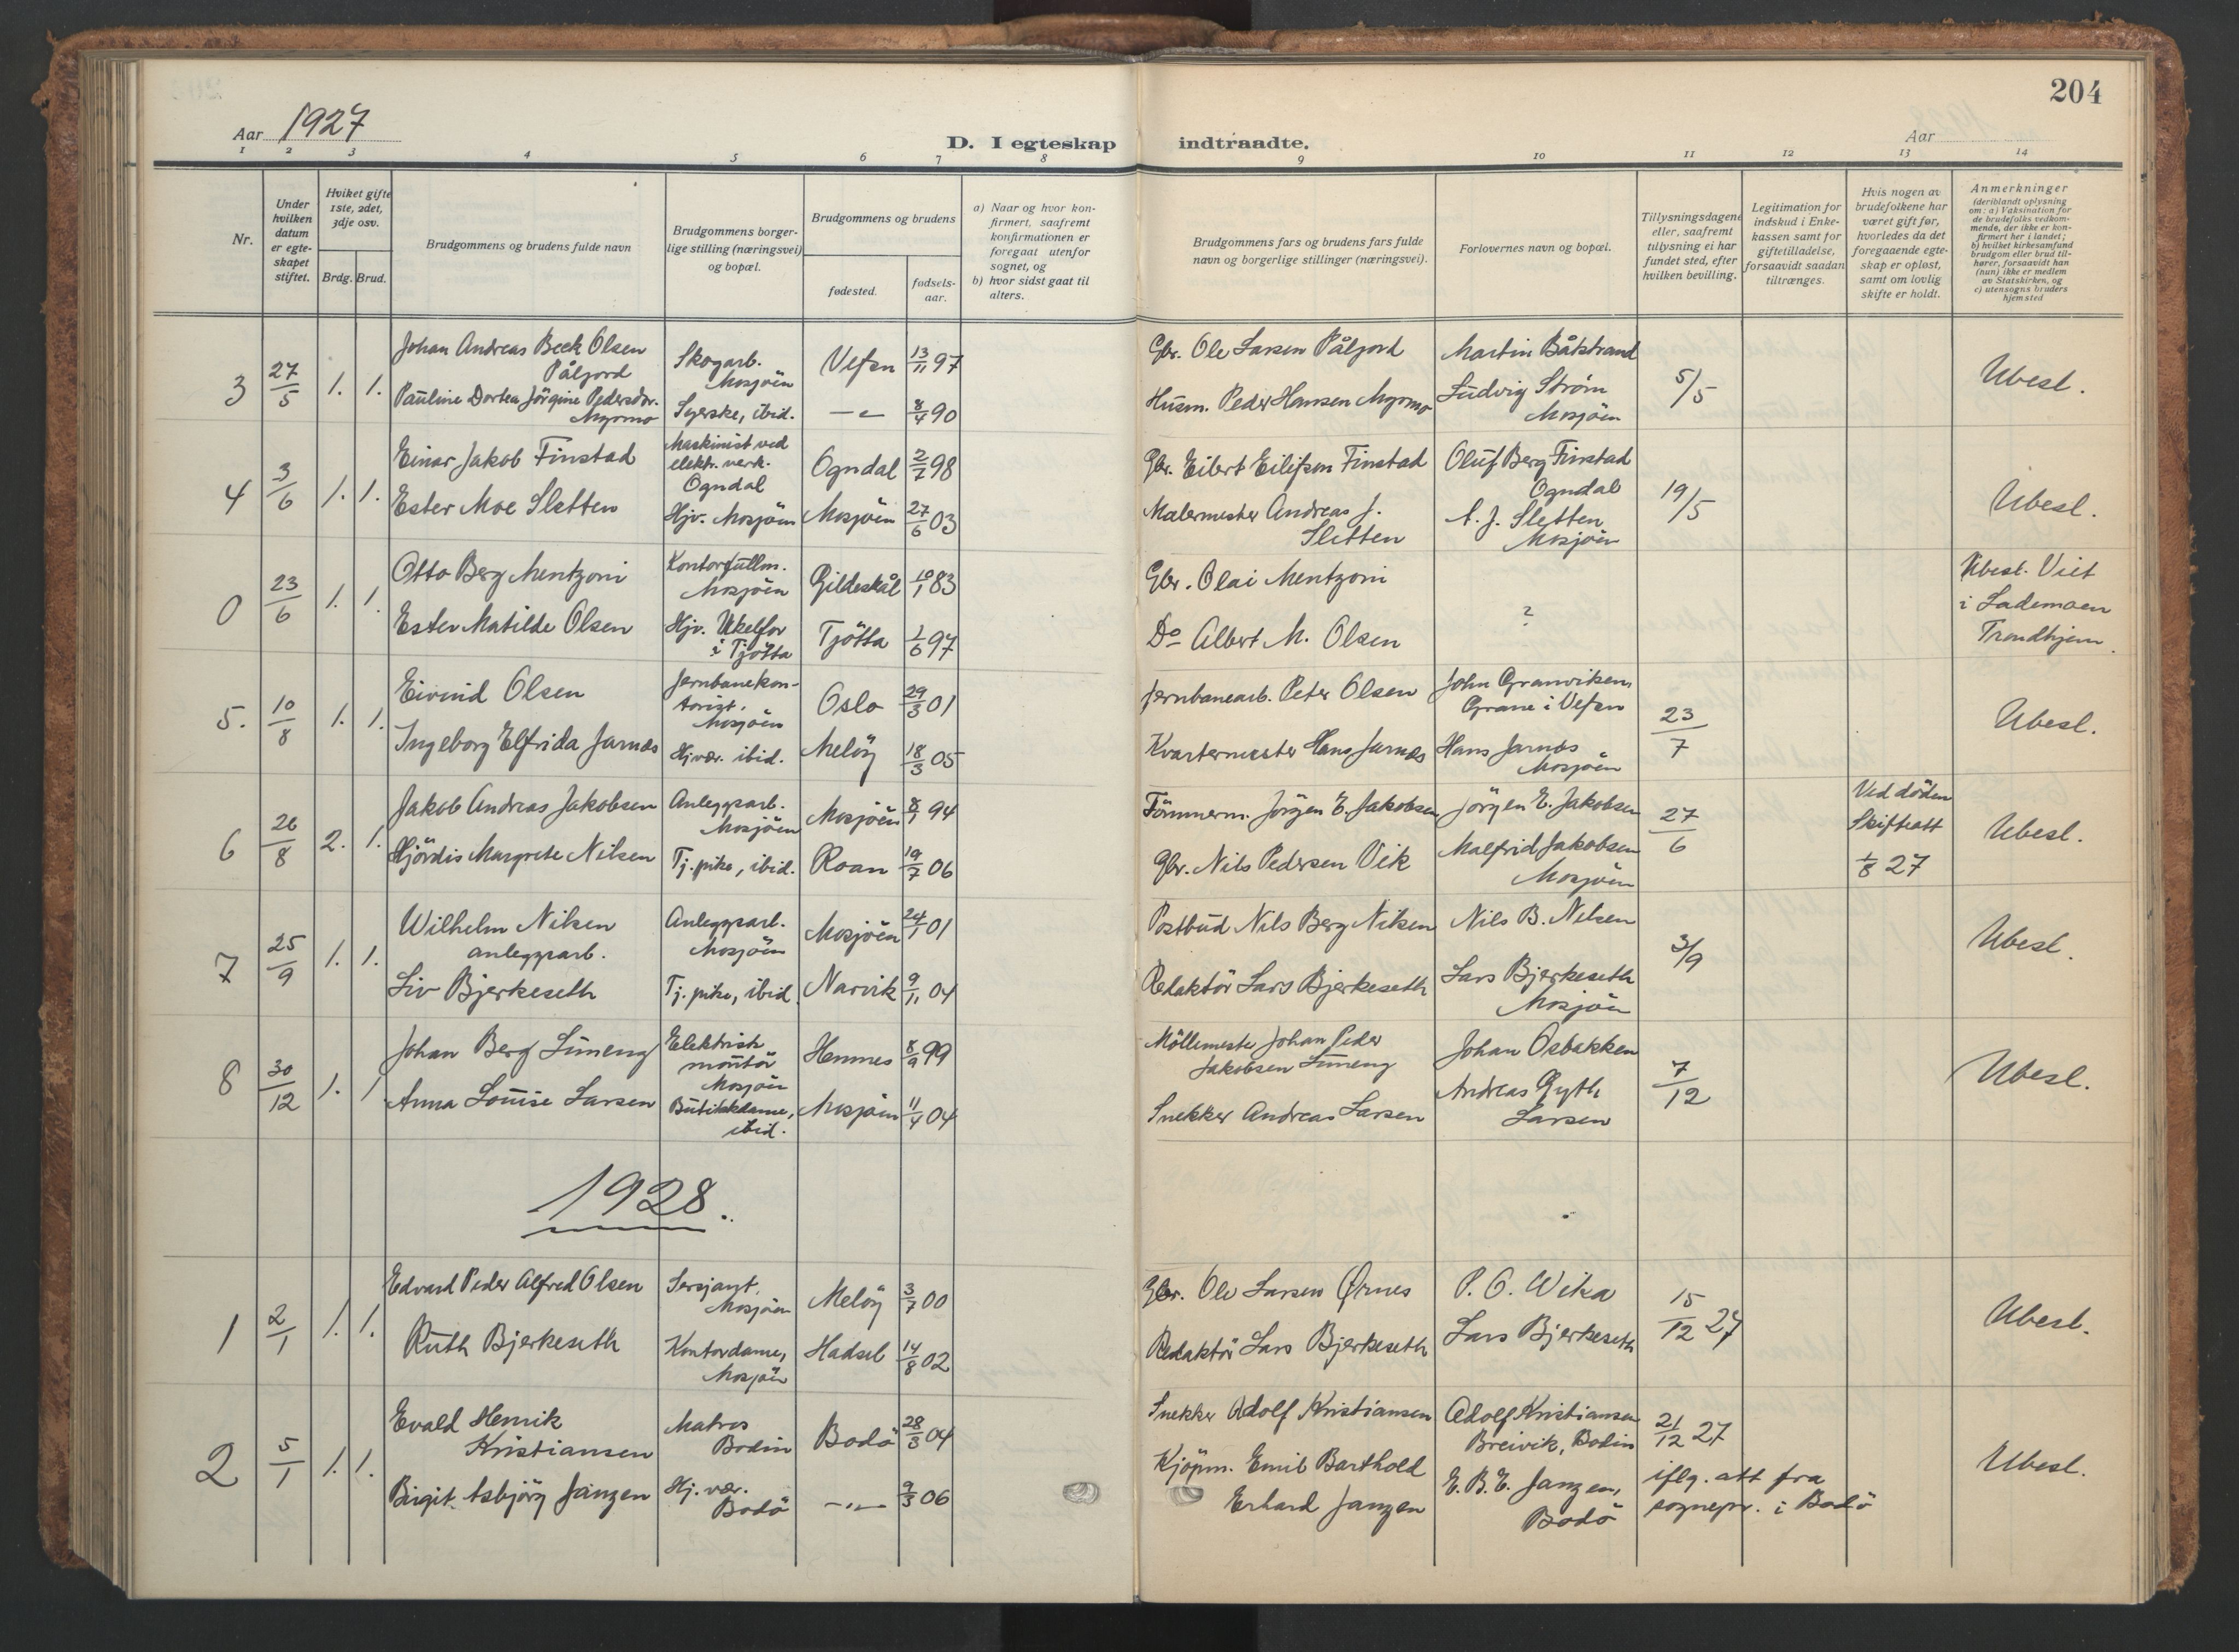 204
Aar 1927
D. I egteskap indtraadte.
Aar
1 2 3 4 5 6 7 8 9 10 11 12 13 14
Nr.
Under hvilken datum er egteskapet stiftet.
Hviket gifte 1ste, 2det, 3dje osv.
Brdg. Brud.
Brudgommens og brudens fulde navn
Brudgommens borger-
lige stilling (næringsvei)
og bopæl.
Brudgommens og brudens
fødested.
fødsels-
aar.
a) Naar og hvor kon-
firmert, saafremt
konfirmationen er
foregaat utenfor
sognet, og
b) hvor sidst gaat til
alters.
Brudgommens fars og brudens fars fulde
navn og borgerlige stillinger (næringsvei).
Forlovernes navn og bopæl.
Tillysningsdagene
eller, saafremt
tillysning ei har
fundet sted, efter
hvilken bevilling.
Legitimation for
indskud i Enke-
kassen samt for
giftetilladelse,
forsaavidt saadan
tiltrænges.
Hvis nogen av
brudefolkene har
været gift før,
hvorledes da det
foregaaende egte-
skap er opløst,
samt om lovlig
skifte er holdt.
Anmerkninger
(deriblandt oplysning
om: a) Vaksination for
de brudefolks vedkom-
mende, der ikke er kon-
firmert her i landet;
b) hvilket kirkesamfund
brudgom eller brud til-
hører, forsaavidt han
(hun) ikke er medlem
av Statskirken, og
c) utensogns bruders
hjemsted
3 27/5 1. 1.
Johan Andreas Beck Olsen
Påljord
Skogarb.
Mosjöen
Vefsn 13/11 97
Gbr. Ole Larsen Påljord
Martin Båtstrand
5/5
Ubesl.
Pauline Dortea Jörgine Pedersdtr.
Myrmo
Syerske, ibid.
—„— 8/4 90
Husm. Peder Hansen Myrmo
Ludvig Strøm
Mosjöen
4 3/6 1. 1.
Einar Jakob Finstad
Maskinist ved
elektr. verk.
Ogndal
Ogndal 2/7 98
Gbr. Eilert Eilifsen Finstad
Oluf Berg Finstad
Ogndal
19/5
Ubesl.
Ester Moe Sletten
Hjv. Mosjöen
Mosjöen 27/6 03
Malermester Andreas J.
Sletten
A. J. Sletten
Mosjöen
0 23/6 1. 1.
Otto Berg Mentzoni
Kontorfullm.
Mosjöen
Gildeskål 10/1 83
Gbr. Olai Mentzoni
?
Ubesl. Viet
i Lademoen
Trondhjem.
Ester Matilde Olsen
Hjv. Ukelfor
i Tjötta
Tjötta 1/6 97
Do Albert M. Olsen
5. 10/8 1. 1.
Eivind Olsen
Jernbanekon-
torist.
Mosjöen
Oslo 29/3 01
Jernbanearb. Peter Olsen
John Granviken,
Grane i Vefsn
23/7
Ubesl.
Ingeborg Elfrida Jarnæs
Hjvær. ibid.
Melöy 18/3 05
Kvartermester Hans Jarnæs
Hans Jarnæs
Mosjöen
6 26/8 2. 1.
Jakob Andreas Jakobsen
Anleggsarb.
Mosjöen
Mosjöen 8/1 94
Tömmerm. Jörgen E. Jakobsen
Jörgen E. Jakobsen
27/6
Ved döden
Skifteatt
1/8 27
Ubesl.
Hjördis Margrete Nilsen
Tj. pike, ibid.
Roan 19/7 06
Gbr. Nils Pedersen Vik
Malfrid Jakobsen
Mosjöen
7 25/9 1. 1.
Wilhelm Nilsen
anleggsarb.
Anleggsarb.
Mosjöen
Mosjöen 24/1 01
Postbud Nils Berg Nilsen
Nils B. Nilsen
3/9
Ubesl.
Liv Bjerkeseth
Tj. pike, ibid.
Narvik 9/11 04
Redaktör Lars Bjerkeseth
Lars Bjerkeseth
Mosjöen
8 30/12 1. 1
Johan Berg Limeng
Elektrisk
montör
Mosjöen
Hemnes 8/9 99
Möllemester Johan Peder
Jakobsen Limeng
Johan Osbakken
7/12
Ubesl.
Anna Louise Larsen
Butikkdame,
ibid.
Mosjöen 11/4 04
Snekker Andreas Larsen
Andreas Gyth
Larsen
1928.
1 2/1 1. 1.
Edvard Peder Alfred Olsen
Sersjant,
Mosjöen
Melöy 3/7 00
Gbr. Ole Larsen Ørnes
P. O. Wika
15/12 27
Ubesl.
Ruth Bjerkeseth
Kontordame,
Mosjöen
Hadsel 14/8 02
Redaktör Lars Bjerkeseth
Lars Bjerkeseth
2 5/1 1. 1.
Evald Henrik
Kristiansen
Matros
Bodin
Bodö 28/3 04
Snekker Adolf Kristiansen
Adolf Kristiansen
Breivik, Bodin
21/12 27
Ubesl.
Birgit Asbjörg Janzen
Hj. vær.
Bodö
—„— 9/3 06
Kjöpm. Emil Barthold
Erhard Janzen
E. B. E. Janzen,
Bodö
iflg. att fra
sognepr. i Bodö